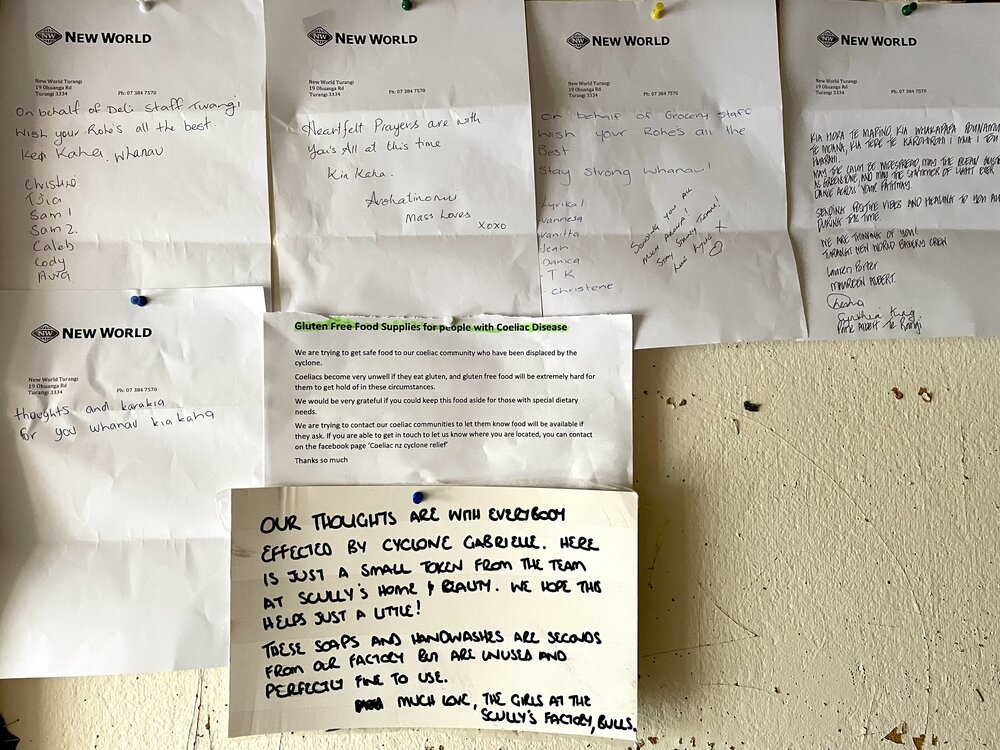 NW NEW WORLD
New World Turangi
19 Ohuanga Rd
Turangi 3334
Ph: 07 384 7570
On behalf of Deli Staff Turangi
Wish your Rohe's all the best.
Kea Kaha Whanau
Christine
Tjia
Sam 1
Sam 2.
Caleb
Cody
NW NEW WORLD
New World Turangi
19 Ohuanga Rd
Turangi 3334
Ph: 07 384 7570
Heartfelt Prayers are with
You's All at this time
Kia Kaha.
Arohatinonui
Mass Loves
xoxo
NW NEW WORLD
New World Turangi
19 Ohuanga Rd
Turangi 3334
Ph: 07 384 7570
On behalf of Grocery Staff
Wish your Rohe's all the
Best
Stay Strong Whanau!
Kyrikal
Vannesa
Vanitta
Jean
Danica
TK
Christene
SENDING YOU ALL
MUCH AROHA!
STAY STRONG TEAM!
X
NW NEW WORLD
New World Turangi
19 Ohuanga Rd
Turangi 3334
Ph: 07 384 7570
KIA HORA TE MARINO, KIA WHAKAPAPA POUNAMU
TE MOANA, KIA TERE TE KAROHIROHI I MUA I TOU
HUARAHI.
MAY THE CALM BE WIDESPREAD, MAY THE OCEAN
AS GREENSTONE, AND MAY THE SHIMMER OF LIGHT EVER
DANCE ACROSS YOUR PATHWAY.
SENDING POSITIVE VIBES AND HEALING TO YOU ALL
DURING THIS TIME.
WE ARE THINKING OF YOU!
TURANGI NEW WORLD BAKERY CREW
Lauren Porter
MAUREEN ALBERT.
Cynthia King
NW NEW WORLD
New World Turangi
19 Ohuanga Rd
Turangi 3334
Ph: 07 384 7570
thoughts and karakia
for you whanau kia kaha
Gluten Free Food Supplies for people with Coeliac Disease
We are trying to get safe food to our coeliac community who have been displaced by the
cyclone.
Coeliacs become very unwell if they eat gluten, and gluten free food will be extremely hard for
them to get hold of in these circumstances.
We would be very grateful if you could keep this food aside for those with special dietary
needs.
We are trying to contact our coeliac communities to let them know food will be available if
they ask. If you are able to get in touch to let us know where you are located, you can contact
on the facebook page 'Coeliac nz cyclone relief'
Thanks so much
OUR THOUGHTS ARE WITH EVERYBODY
EFFECTED BY CYCLONE GABRIELLE. HERE
IS JUST A SMALL TOKEN FROM THE TEAM
AT SCULLY'S HOME & BEAUTY. WE HOPE THIS
HELPS JUST A LITTLE!
THESE SOAPS AND HANDWASHES ARE SECONDS
FROM OUR FACTORY BUT ARE UNUSED AND
PERFECTLY FINE TO USE.
MUCH LOVE, THE GIRLS AT THE
SCULLY'S FACTORY, BULLS.